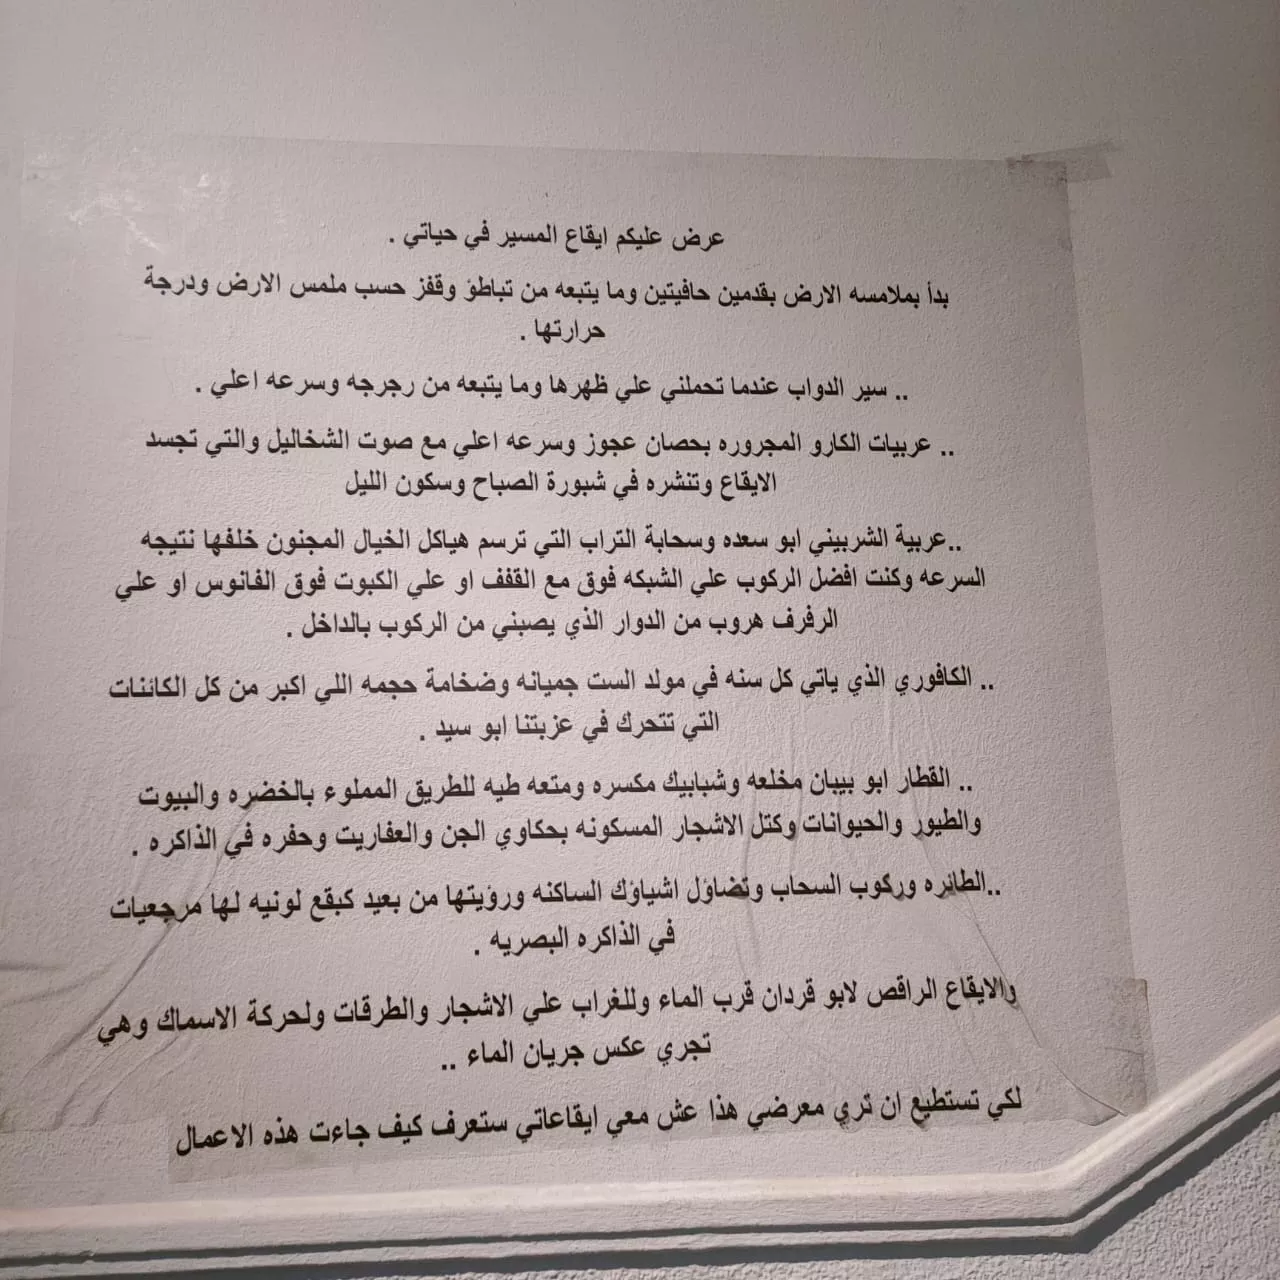 عرض عليكم ايقاع المسير في حياتي .
بدأ بملامسه الارض بقدمين حافيتين وما يتبعه من تباطؤ وقفز حسب ملمس الارض ودرجة
حرارتها .
.. سير الدواب عندما تحملني علي ظهرها وما يتبعه من رجرجه وسرعه اعلي .
.. عربيات الكارو المجروره بحصان عجوز وسرعه اعلي مع صوت الشخاليل والتي تجسد
الايقاع وتنشره في شبورة الصباح وسكون الليل
..عربية الشربيني ابو سعده وسحابة التراب التي ترسم هياكل الخيال المجنون خلفها نتيجه
السرعه وكنت افضل الركوب علي الشبكه فوق مع القفف او علي الكبوت فوق الفانوس او علي
الرفرف هروب من الدوار الذي يصبني من الركوب بالداخل .
.. الكافوري الذي ياتي كل سنه في مولد الست جميانه وضخامة حجمه اللي اكبر من كل الكائنات
التي تتحرك في عزبتنا ابو سيد .
.. القطار ابو بيبان مخلعه وشبابيك مكسره ومتعه طيه للطريق المملوء بالخضره والبيوت
والطيور والحيوانات وكتل الاشجار المسكونه بحكاوي الجن والعفاريت وحفره في الذاكره .
..الطائره وركوب السحاب وتضاؤل اشياؤك الساكنه ورؤيتها من بعيد كبقع لونيه لها مرجعيات
في الذاكره البصريه .
والايقاع الراقص لابو قردان قرب الماء وللغراب علي الاشجار والطرقات ولحركة الاسماك وهي
تجري عكس جريان الماء ..
لكي تستطيع ان تري معرضي هذا عش معي ايقاعاتي ستعرف كيف جاءت هذه الاعمال